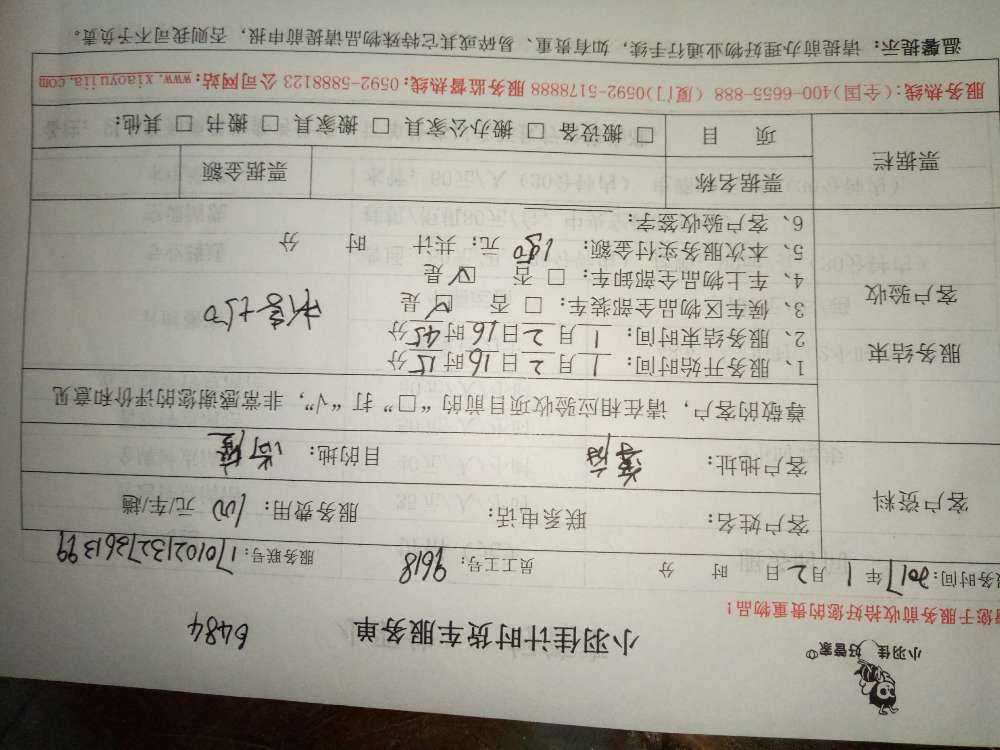 小羽佳 好管家
小羽佳计时货车服务单 6484
您于服务前收拾好您的贵重物品!
服务时间: 2017年 1 月 2 日 时 分 员工工号: 9618 服务联号:
客户资料
客户姓名: 联系电话: 服务费用: 100 元/车/趟
客户地址: 目的地:
尊敬的客户, 请在相应验收项目前的“□”打“√”, 非常感谢您的评价和意见
服务结束
客户验收
1、服务开始时间: 1 月 2 日 16 时 15 分
2、服务结束时间: 1 月 2 日 16 时 45 分
3、候车区物品全部装车: □ 否 ☑ 是
4、车上物品全部卸车: □ 否 ☑ 是
5、本次服务实付金额: 150 元; 共计 时 分
6、客户验收签字:
票据栏
票据名称 票据金额
项 目 □ 搬设备 □ 搬办公家具 □ 搬家具 □ 搬书 □ 其他:
服务热线:(全国)400-6655-888 (厦门)0592-5178888 服务监督热线:0592-5888123 公司网站:www.xiaoyujia.com
温馨提示: 请提前办理好物业通行手续, 如有贵重、易碎或其它特殊物品请提前申报, 否则我司不予负责。